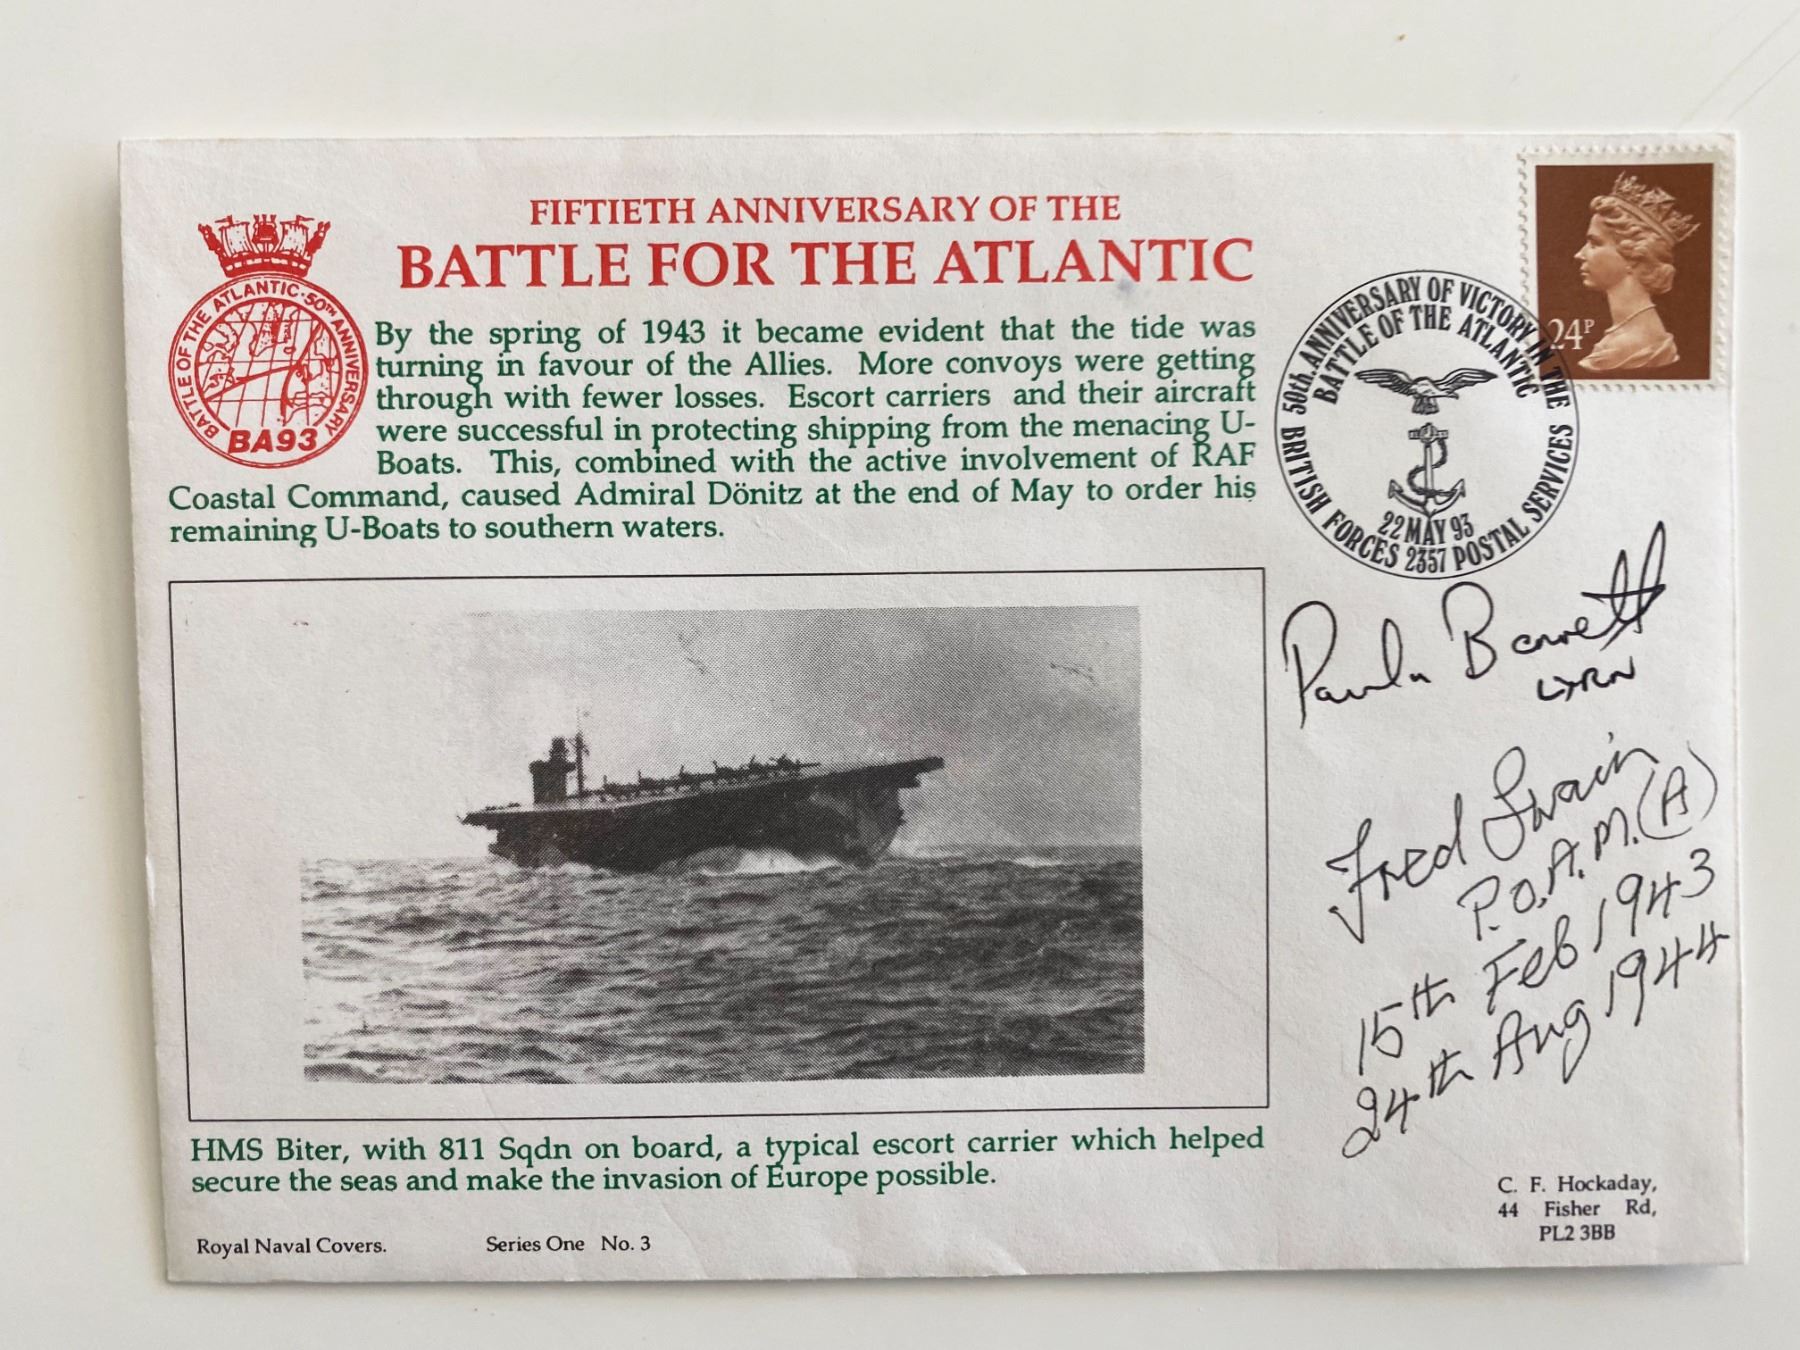 FIFTIETH ANNIVERSARY OF THE
BATTLE FOR THE ATLANTIC
BATTLE OF THE ATLANTIC·50TH ANNIVERSARY
BA93
By the spring of 1943 it became evident that the tide was
turning in favour of the Allies. More convoys were getting
through with fewer losses. Escort carriers and their aircraft
were successful in protecting shipping from the menacing U-
Boats. This, combined with the active involvement of RAF
Coastal Command, caused Admiral Dönitz at the end of May to order his
remaining U-Boats to southern waters.
24P
50th. ANNIVERSARY OF VICTORY IN THE
BATTLE OF THE ATLANTIC
22 MAY 93
BRITISH FORCES 2357 POSTAL SERVICES
Paula Barrett
Fred Swain
P.O.A.M.(A)
15th Feb 1943
24th Aug 1944
HMS Biter, with 811 Sqdn on board, a typical escort carrier which helped
secure the seas and make the invasion of Europe possible.
C. F. Hockaday,
44 Fisher Rd,
PL2 3BB
Royal Naval Covers. Series One No. 3